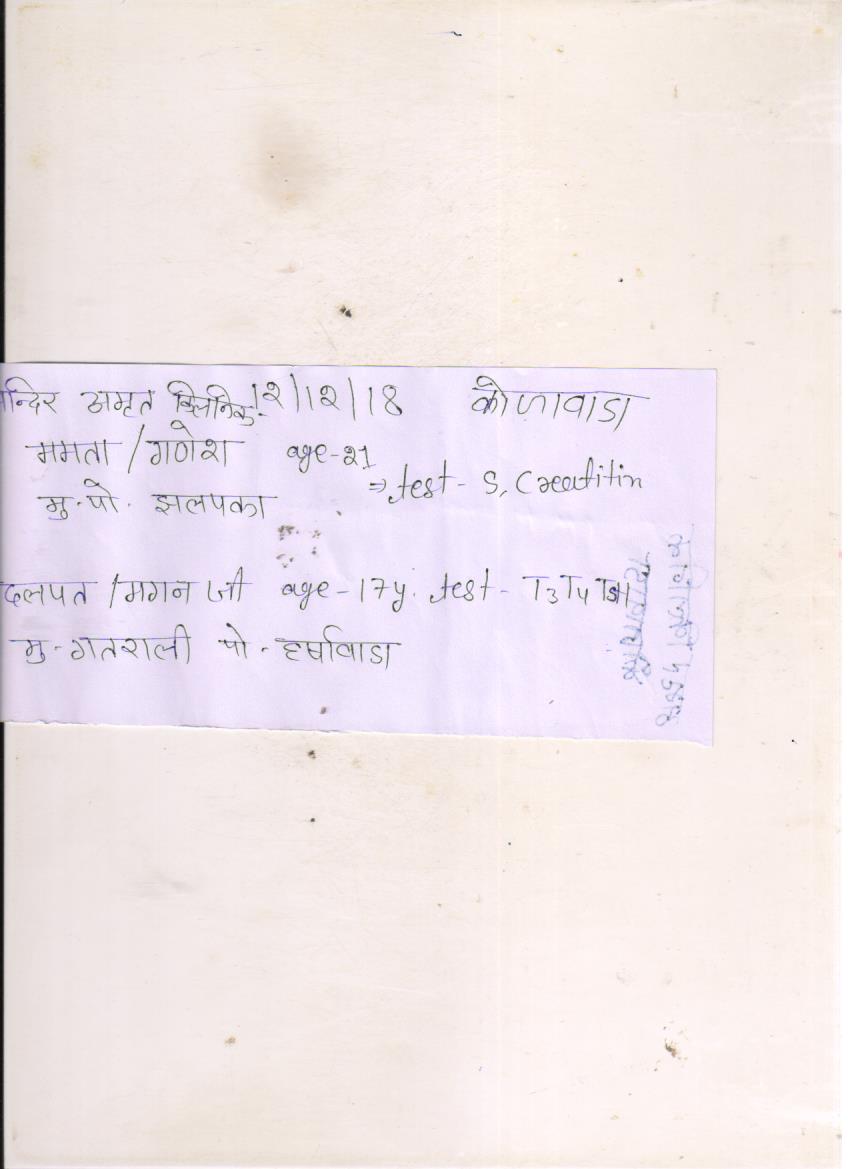 न्दिर अमृत क्लिनिक 12/12/18 कोजावाडा
ममता / गणेश age-21
मु. पो. झलपका ⇒ test - S, Creatitin
दलपत / मगन जी age - 17y. test - T3 T4
मु - गतराली पो - हर्षावाडा